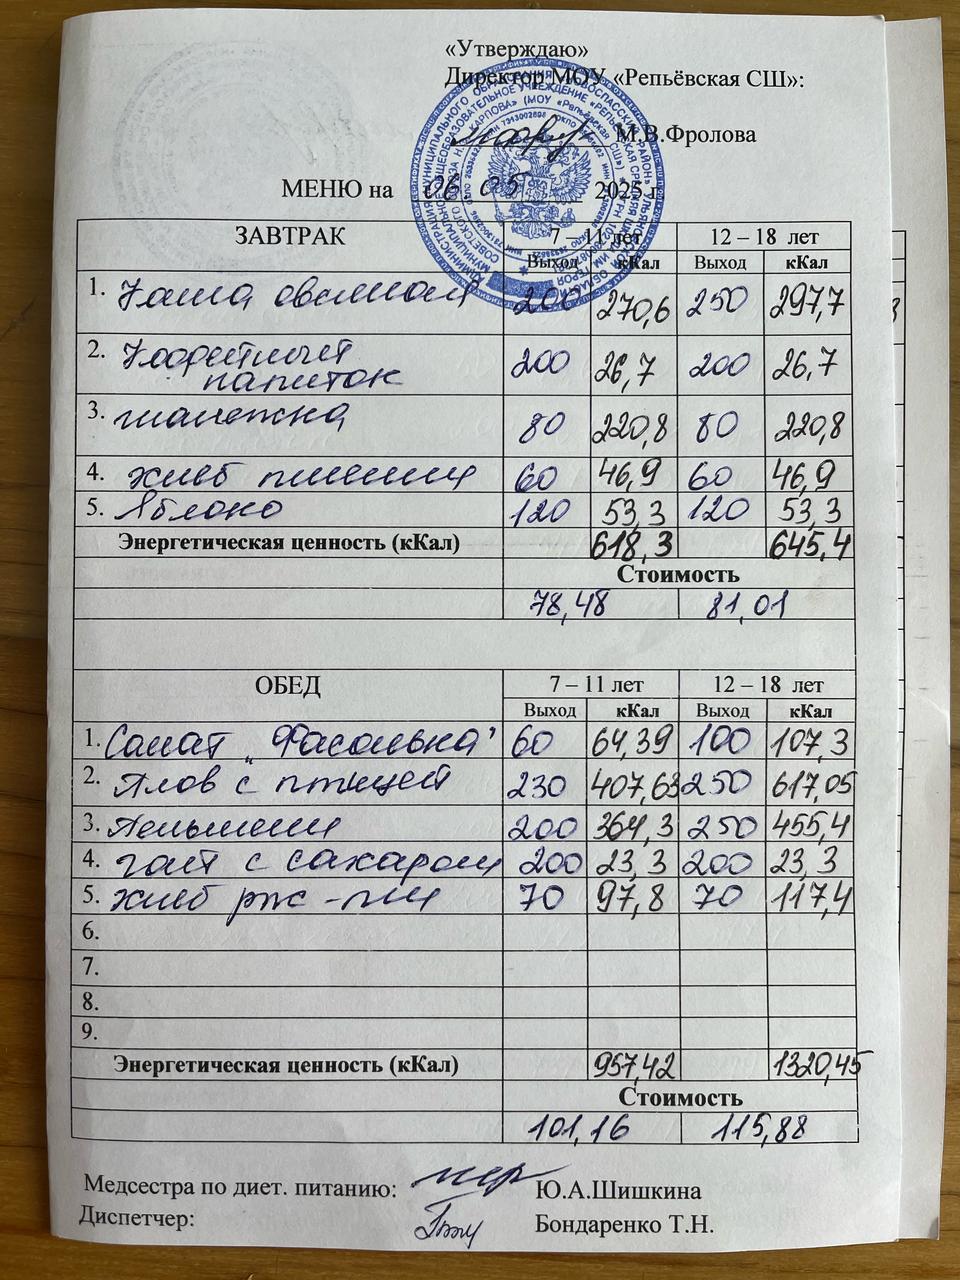 «Утверждаю»
Директор МОУ «Репьёвская СШ»:
М.В.Фролова
МЕНЮ на 06 05 2025 г
ЗАВТРАК 7 – 11 лет 12 – 18 лет
Выход кКал Выход кКал
1. Каша овсяная 200 270,6 250 297,7
2. Кофейный
напиток 200 26,7 200 26,7
3. шанежка 80 220,8 80 220,8
4. хлеб пшенич 60 46,9 60 46,9
5. Яблоко 120 53,3 120 53,3
Энергетическая ценность (кКал) 618,3 645,4
Стоимость
78,48 81,01
ОБЕД 7 – 11 лет 12 – 18 лет
Выход кКал Выход кКал
1. Салат „Фасолька" 60 64,39 100 107,3
2. Плов с птицей 230 407,63 250 617,05
3. Пельмени 200 364,3 250 455,4
4. чай с сахаром 200 23,3 200 23,3
5. хлеб рж-пш 70 97,8 70 117,4
6.
7.
8.
9.
Энергетическая ценность (кКал) 957,42 1320,45
Стоимость
101,16 115,88
Медсестра по диет. питанию: Ю.А.Шишкина
Диспетчер: Бондаренко Т.Н.